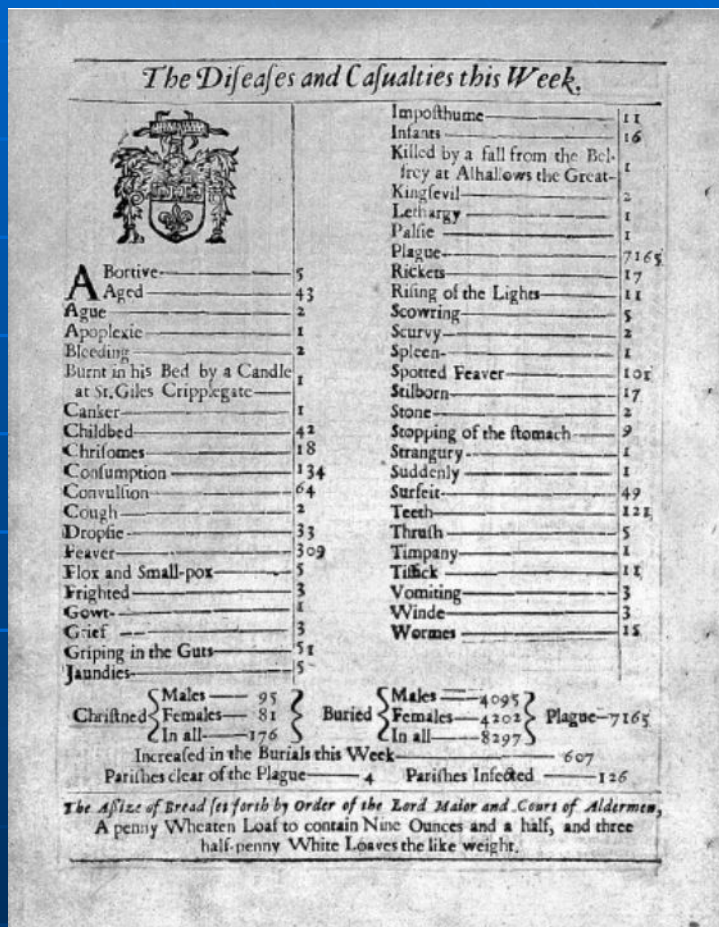 The Diſeaſes and Caſualties this Week.
ABortive 5
Aged 43
Ague 2
Apoplexie 1
Bleeding 2
Burnt in his Bed by a Candle
at St. Giles Cripplegate 1
Canker 1
Childbed 42
Chriſomes 18
Conſumption 134
Convulſion 64
Cough 2
Dropſie 33
Feaver 309
Flox and Small-pox 5
Frighted 3
Gowt 1
Grief 3
Griping in the Guts 51
Jaundies 5
Impoſthume 11
Infants 16
Killed by a fall from the Bel-
frey at Alhallows the Great 1
Kingſevil 2
Lethargy 1
Palſie 1
Plague 7165
Rickets 17
Riſing of the Lights 11
Scowring 5
Scurvy 2
Spleen 1
Spotted Feaver 101
Stilborn 17
Stone 2
Stopping of the ſtomach 9
Strangury 1
Suddenly 1
Surfeit 49
Teeth 121
Thruſh 5
Timpany 1
Tiſſick 11
Vomiting 3
Winde 3
Wormes 15
Chriſtned
Males 95
Females 81
In all 176
Buried
Males 4095
Females 4202
In all 8297
Plague 7165
Increaſed in the Burials this Week 607
Pariſhes clear of the Plague 4 Pariſhes Infected 126
The Aſsize of Bread ſet forth by Order of the Lord Maior and Court of Aldermen,
A penny Wheaten Loaf to contain Nine Ounces and a half, and three
half-penny White Loaves the like weight.